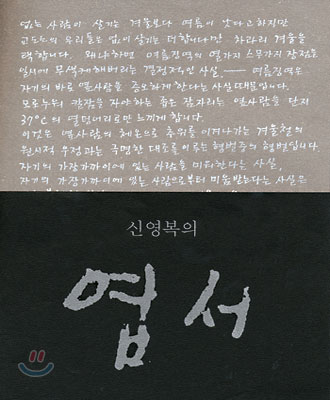 없는 사람이 살기는 겨울보다 여름이 낫다고 하지만
교도소의 우리들은 없이 살기는 더합니다만 차라리 겨울을
택합니다. 왜냐하면 여름징역의 열가지 스무가지 장점을
일시에 무색케 해버리는 결정적인 사실, —— 여름징역은
자기의 바로 옆사람을 증오하게 한다는 사실 때문입니다.
모로 누워 칼잠을 자야하는 좁은 잠자리는 옆사람을 단지
37°C의 열덩어리로만 느끼게 합니다.
이것은 옆사람의 체온으로 추위를 이겨나가는 겨울철의
원시적 우정과는 극명한 대조를 이루는 형벌중의 형벌입니다.
자기의 가장 가까이에 있는 사람을 미워한다는 사실,
자기의 가장 가까이에 있는 사람으로부터 미움받는다는 사실은
신영복의
엽서